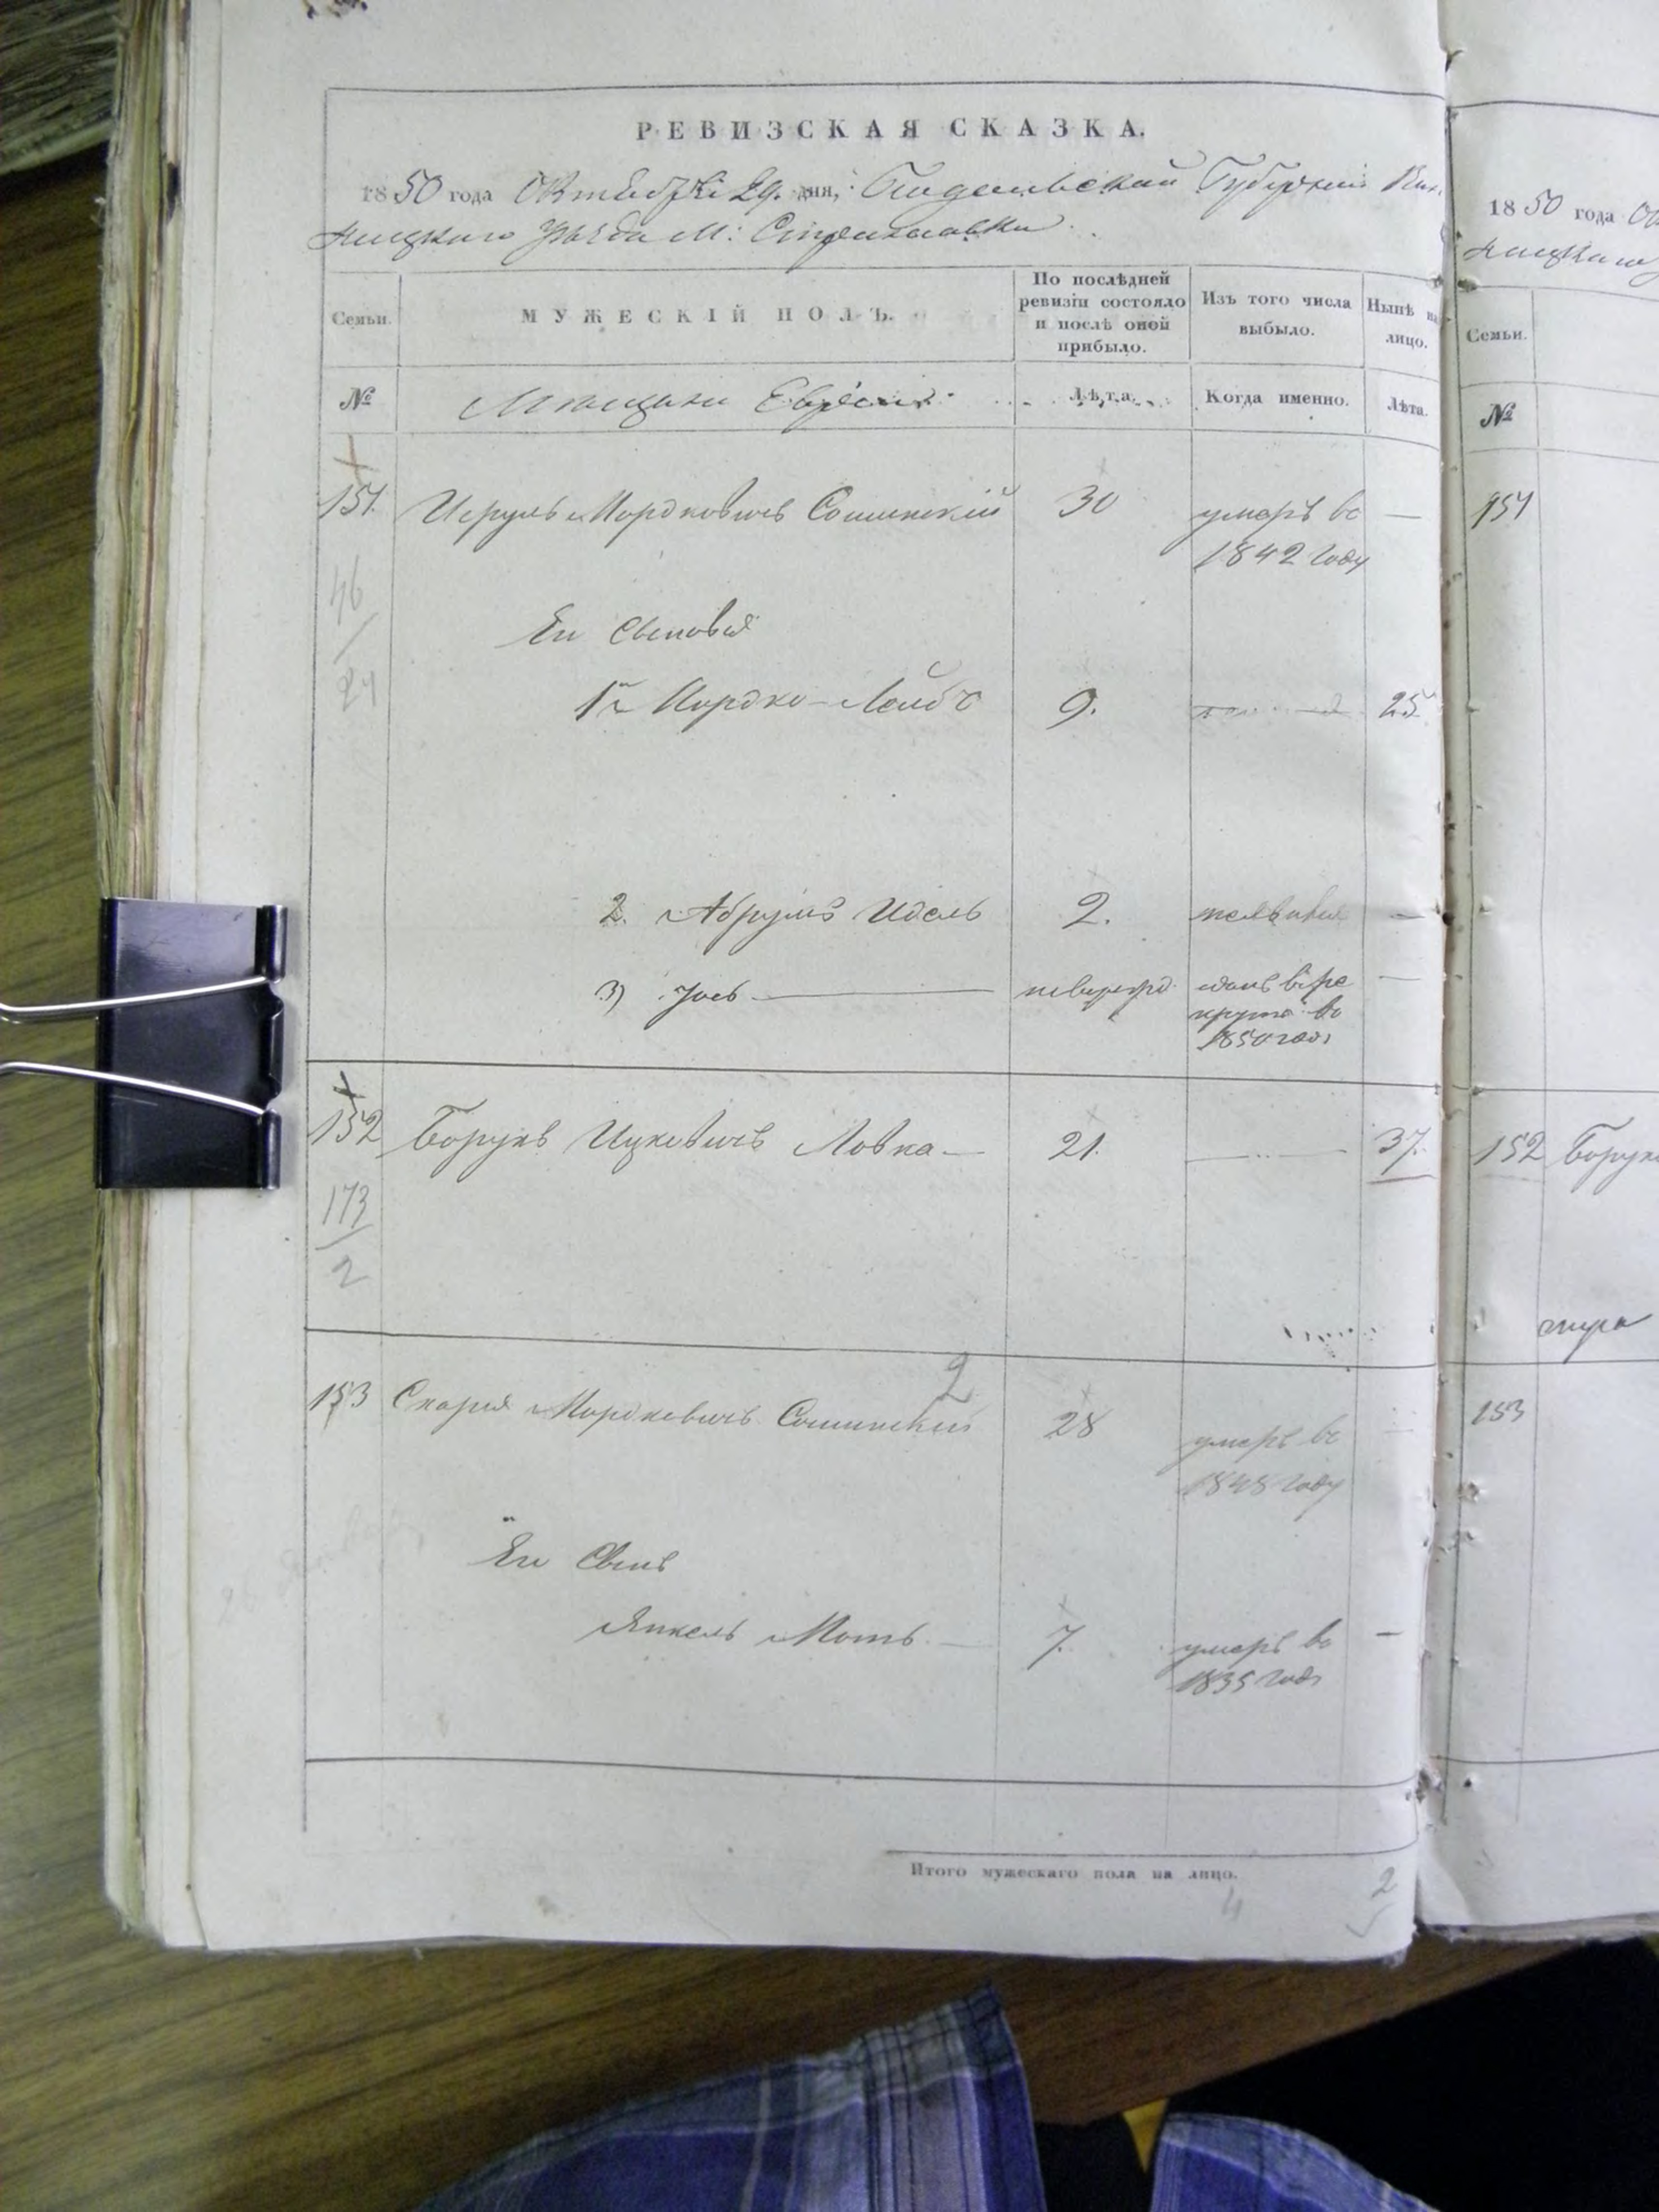 РЕВИЗСКАЯ СКАЗКА.
1850 года Октября 29. дня, Подольской Губернии Вин
ницкого Уезда М: Стрижавки
Семьи.
МУЖЕСКІЙ ПОЛЪ.
По послѣдней
ревизіи состояло
и послѣ оной
прибыло.
Изъ того числа
выбыло.
Нынѣ на
лицо.
№
Мещане Евреи
Лѣта.
Когда именно.
Лѣта.
151. Исруль Мордковичъ Сошинскій 30 умеръ въ —
1842 году
46
24
Его Сыновья
1й Мордко-Лейбъ 9. 25
2. Абрумъ Идель 2. —
3) Иось — неверевд. отданъ въ ре —
круты въ
1850 году
152 Борухъ Ицковичъ Ловка — 21. — 37.
173
2
2
153 Скария Мордковичъ Сошинский 28 умеръ въ
1848 году
Его Сынъ
Янкель Мотъ — 7. умеръ въ —
1835 году
Итого мужескаго пола на лицо.
4
2
1850 года
ницкого
Семьи.
№
151
152 Борух
153